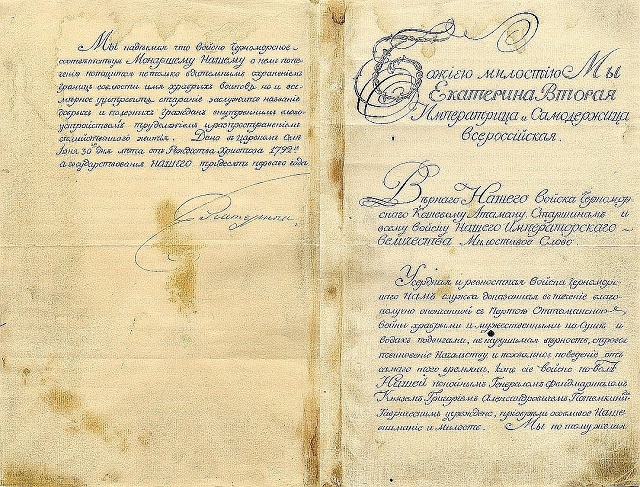 Мы надѣемся что войско Черноморское
соотвѣтствуя Монаршему Нашему о немъ попе-
ченiю потщится не токмо бдительнымъ охраненiемъ
границъ соблюсти имя храбрыхъ воиновъ, но и все-
мѣрное употребить старанiе заслужить названiе
добрыхъ и полезныхъ гражданъ внутреннимъ благо-
устройствомъ трудолюбiемъ и распространенiемъ
семейственнаго житiя. Дано въ Царскомъ Селѣ
Iюня 30го дня лѣта отъ Рождества Христова 1792го
а государствованiя НАШЕГО тридесять перваго года
Екатерина.
Божiею милостiю Мы
Екатерина Вторая
Императрица и Самодержица
всероссiйская.
Вѣрнаго Нашего Войска Черномор-
скаго Кошевому Атаману, Старшинамъ и
всему войску Нашего Императорскаго
величества Милостивое Слово.
Усердная и ревностная Войска Черномор-
скаго Намъ служба доказанная въ теченiе благо-
получно оконченной съ Портою Оттоманскою
войны храбрыми и мужественными на Сушѣ и
водахъ подвигами, ненарушимая вѣрность, строгое
повиновенiе Начальству и похвальное поведенiе отъ
самаго того времяни, какъ сiе войско по волѣ
Нашей покойнымъ Генераломъ Фелдмаршаломъ
Княземъ Григорiемъ Александровичемъ Потемкинымъ
Таврическимъ учреждено, прiобрѣли особливое Наше
вниманiе и милость. Мы по тому желая